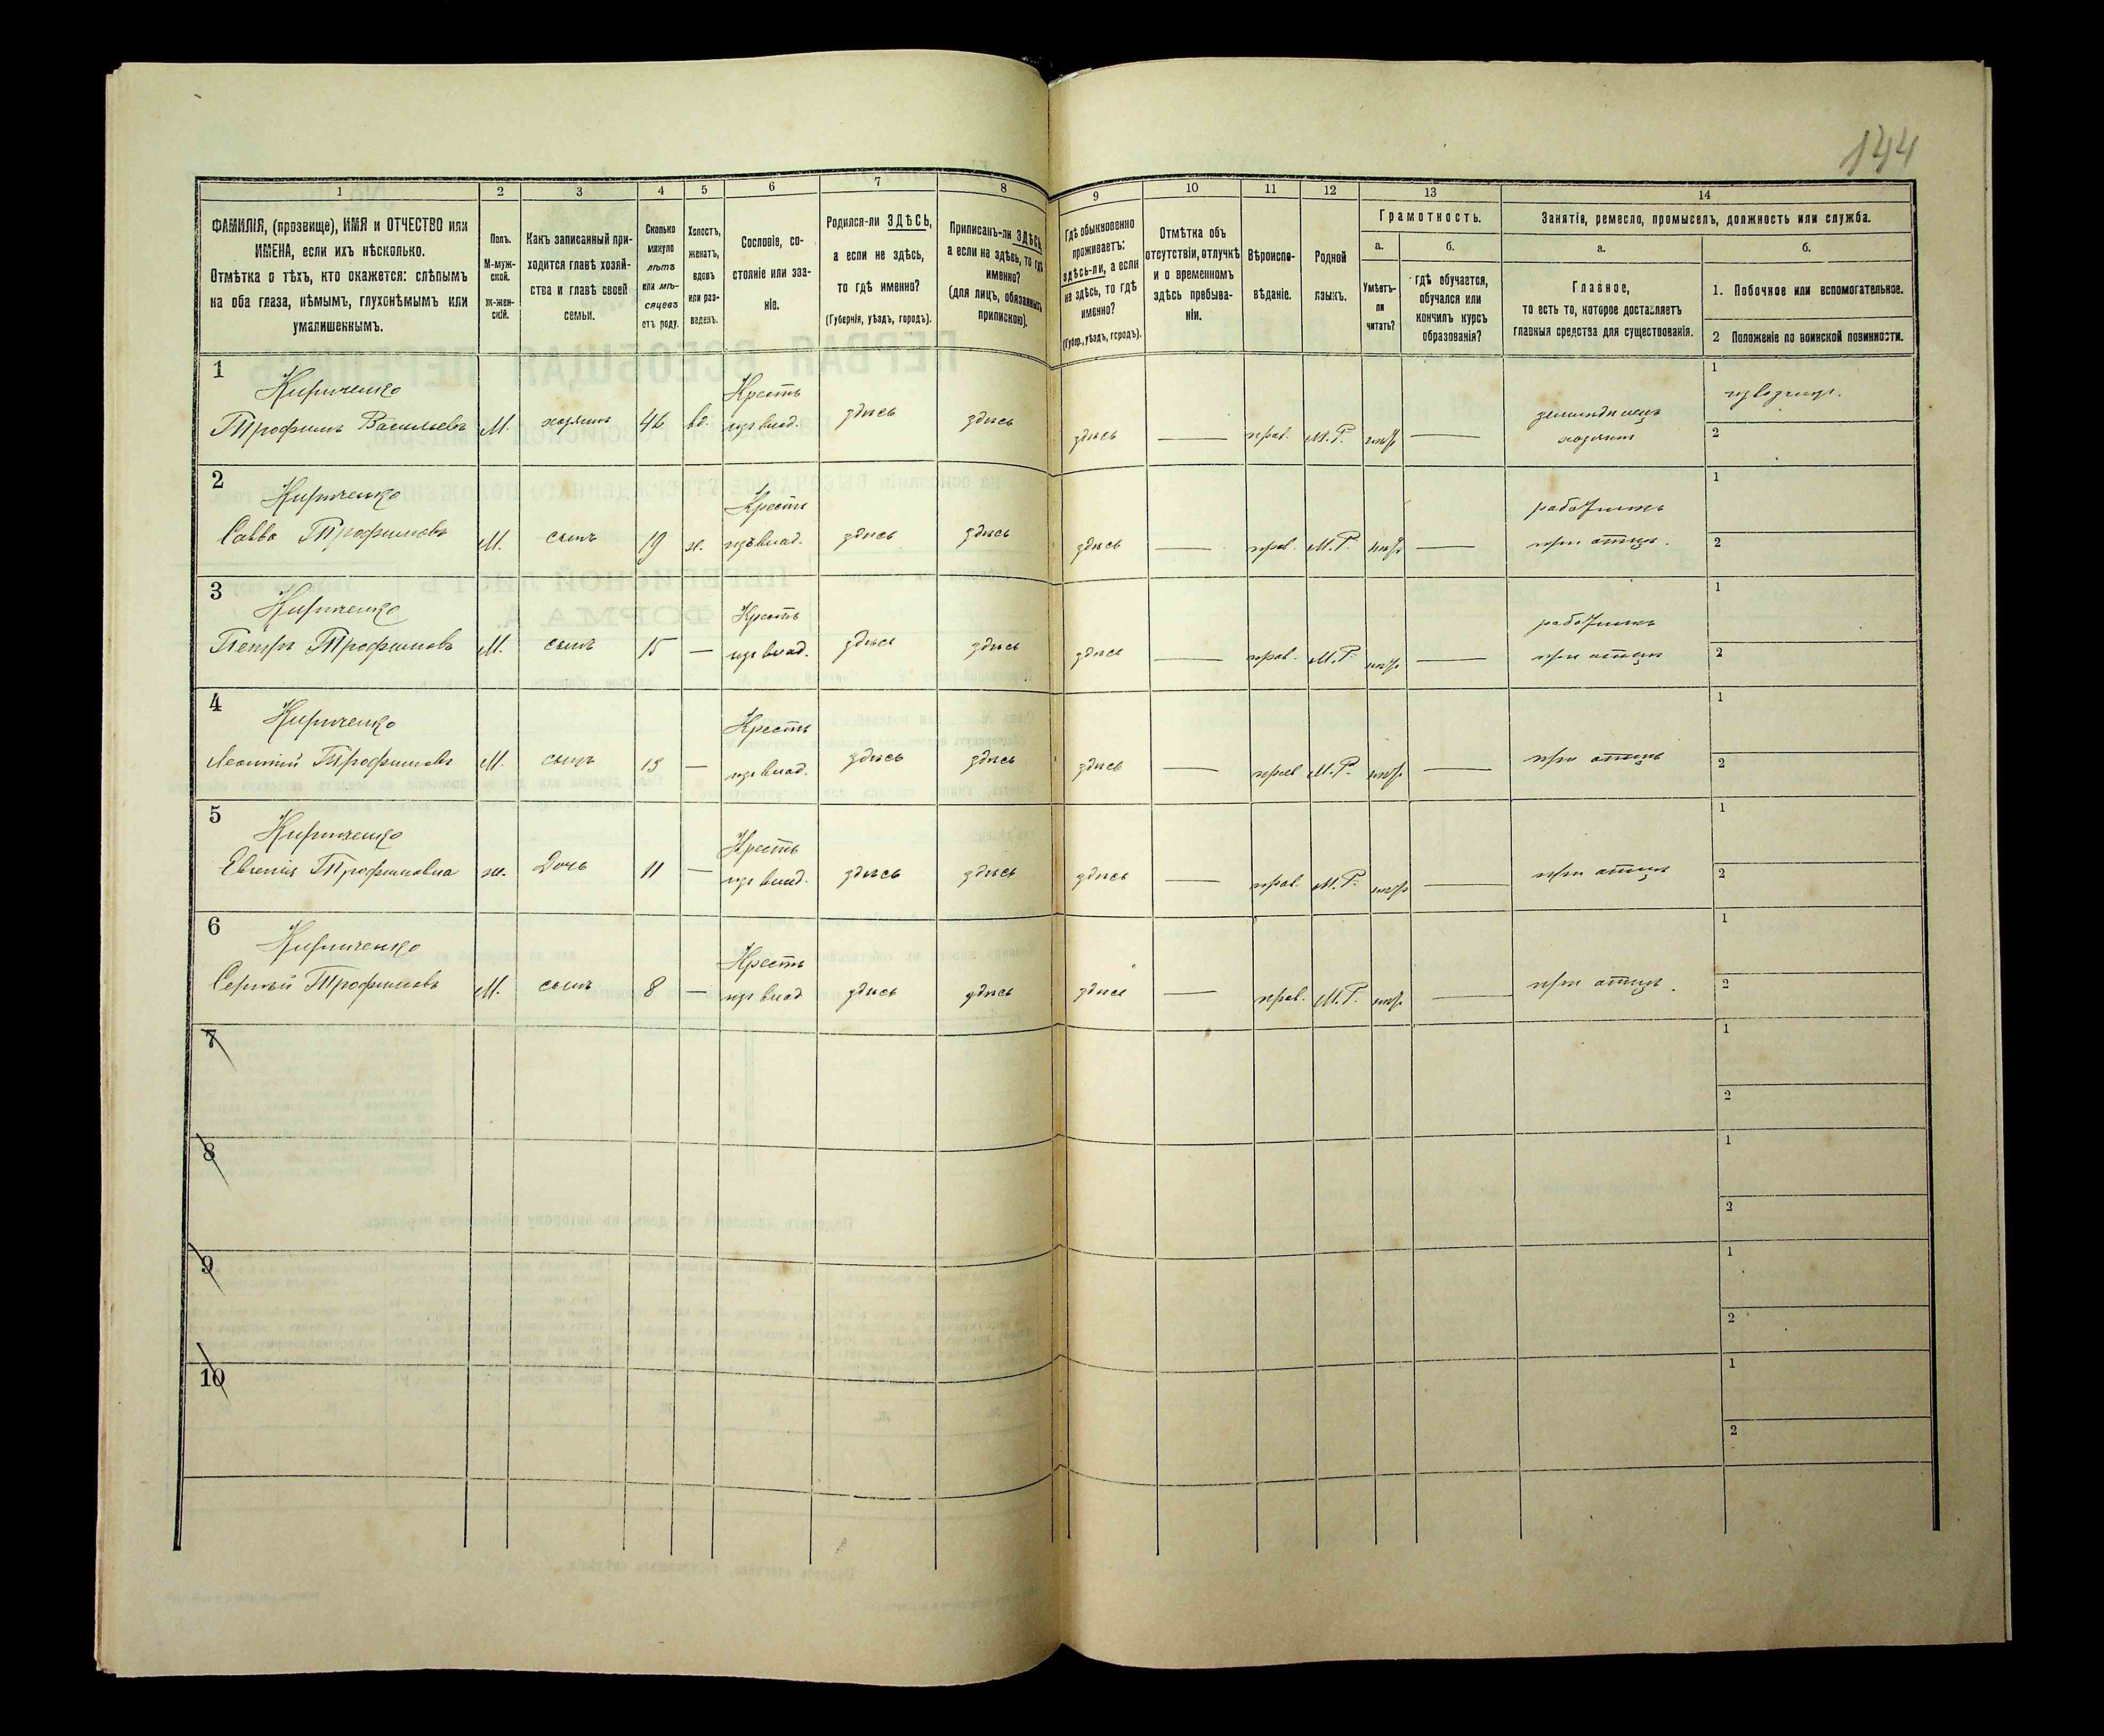 144
1 2 3 4 5 6 7 8 9 10 11 12 13 14
ФАМИЛІЯ, (прозвище), ИМЯ и ОТЧЕСТВО или
ИМЕНА, если ихъ нѣсколько.
Отмѣтка о тѣхъ, кто окажется: слѣпымъ
на оба глаза, нѣмымъ, глухонѣмымъ или
умалишеннымъ.
Полъ.
М-муж-
ской.
Ж-жен-
скій.
Какъ записанный при-
ходится главѣ хозяй-
ства и главѣ своей
семьи.
Сколько
минуло
лѣтъ
или мѣ-
сяцевъ
отъ роду.
Холостъ,
женатъ,
вдовъ
или раз-
веденъ.
Сословіе, со-
стояніе или зва-
ніе.
Родился-ли ЗДѢСЬ,
а если не здѣсь,
то гдѣ именно?
(Губернія, уѣздъ, городъ).
Приписанъ-ли ЗДѢСЬ,
а если не здѣсь, то гдѣ
именно?
(для лицъ, обязанныхъ
припискою).
Гдѣ обыкновенно
проживаетъ:
здѣсь-ли, а если
не здѣсь, то гдѣ
именно?
(Губер., уѣздъ, городъ).
Отмѣтка объ
отсутствіи, отлучкѣ
и о временномъ
здѣсь пребыва-
ніи.
Вѣроиспо-
вѣданіе.
Родной
языкъ.
Грамотность.
а.
Умѣетъ-
ли
читать?
б.
Гдѣ обучается,
обучался или
кончилъ курсъ
образованія?
Занятія, ремесло, промыселъ, должность или служба.
а.
Главное,
то есть то, которое доставляетъ
главныя средства для существованія.
б.
1. Побочное или вспомогательное.
2 Положеніе по воинской повинности.
1
Кириченко Крестъ 1 извозчикъ.
Трофимъ Васильевъ М. хозяинъ 46 вд. изъ влад. здѣсь здѣсь здѣсь — прав. М.Р. — земледѣлецъ
хозяинъ 2
2
Кириченко Крестъ работникъ 1
Савва Трофимовъ М. сынъ 19 х. изъ влад. здѣсь здѣсь здѣсь — прав. М.Р. — при отцѣ. 2
3
Кириченко Крестъ работникъ 1
Петръ Трофимовъ М. сынъ 15 — изъ влад. здѣсь здѣсь здѣсь — прав. М.Р. — при отцѣ 2
4
Кириченко Крестъ 1
Леонтій Трофимовъ М. сынъ 13 — изъ влад. здѣсь здѣсь здѣсь — прав М.Р. — при отцѣ 2
5
Кириченко Крестъ 1
Евгенія Трофимовна ж. Дочь 11 — изъ влад. здѣсь здѣсь здѣсь — прав. М.Р. — при отцѣ 2
6
Кириченко Крестъ 1
Сергѣй Трофимовъ М. сынъ 8 — изъ влад здѣсь здѣсь здѣсь — прав. М.Р. — при отцѣ. 2
7 1
2
8 1
2
9 1
2
10 1
2